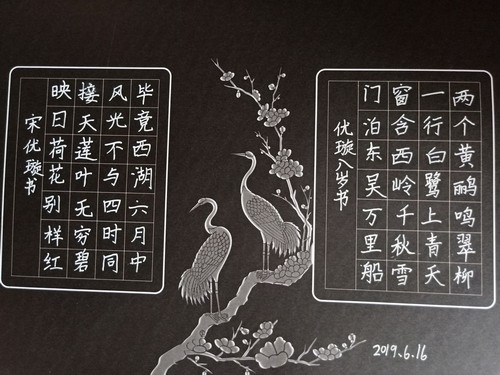 两个黄鹂鸣翠柳
一行白鹭上青天
窗含西岭千秋雪
门泊东吴万里船
优璇八岁书
毕竟西湖六月中
风光不与四时同
接天莲叶无穷碧
映日荷花别样红
宋优璇书
2019.6.16